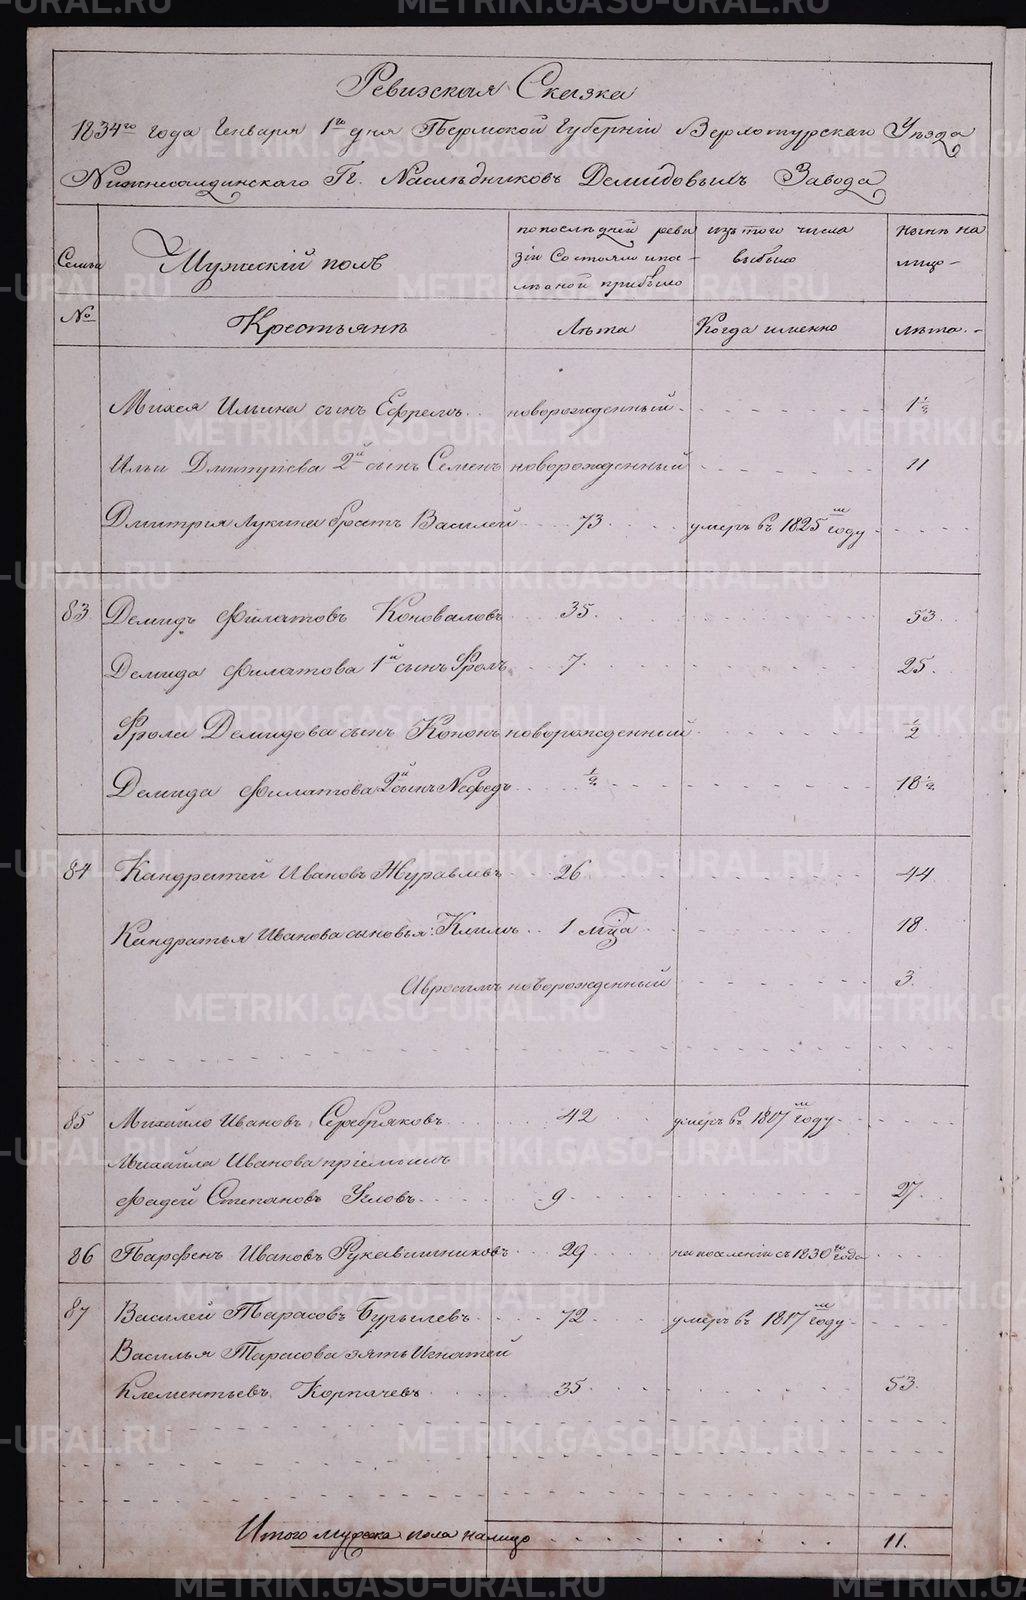 Ревизская Сказка
1834го года Генваря 1го дня Пермской Губерніи Верхотурскаго Уѣзда
Нижнесалдинскаго Гг. Наслѣдниковъ Демидовыхъ Завода
Семьи
Мужескій полъ
по послѣдней реви
зіи Состояло и по-
слѣ оной прибыло
изъ того числа
выбыло
нынѣ на
лицо-
№
Крестьянѣ
Лѣта
Когда именно
лѣта.-
Михея Ильина сынъ Ефремъ новорожденный 1 ½
Ильи Дмитріева 2й сынъ Семенъ новорожденный 11
Дмитрія Лукина братъ Василей 73 умеръ въ 1825м году
83 Демидъ Филатовъ Коноваловъ 35. 53
Демида Филатова 1й сынъ Фролъ 7. 25.
Фрола Демидова сынъ Кононъ новорожденный ½
Демида Филатова 2й сынъ Нефедъ ½ 18 ½
84 Кандратей Ивановъ Журавлевъ 26 44
Кандратья Иванова сыновья: Климъ 1 мца 18.
Авросимъ новорожденный 3.
85 Михайло Ивановъ Серебряковъ 42 умеръ въ 1817м году
Михайла Иванова пріемышъ
Фадей Степановъ Угловъ 9 27.
86 Парфенъ Ивановъ Рукавишниковъ 29 на поселеніи съ 1830го года
87 Василей Тарасовъ Бурылевъ 72 умеръ въ 1817м году
Василья Тарасова зять Игнатей
Клементьевъ Корпачевъ 35 53.
Итого мужеска пола налицо 11.
METRIKI.GASO-URAL.RU